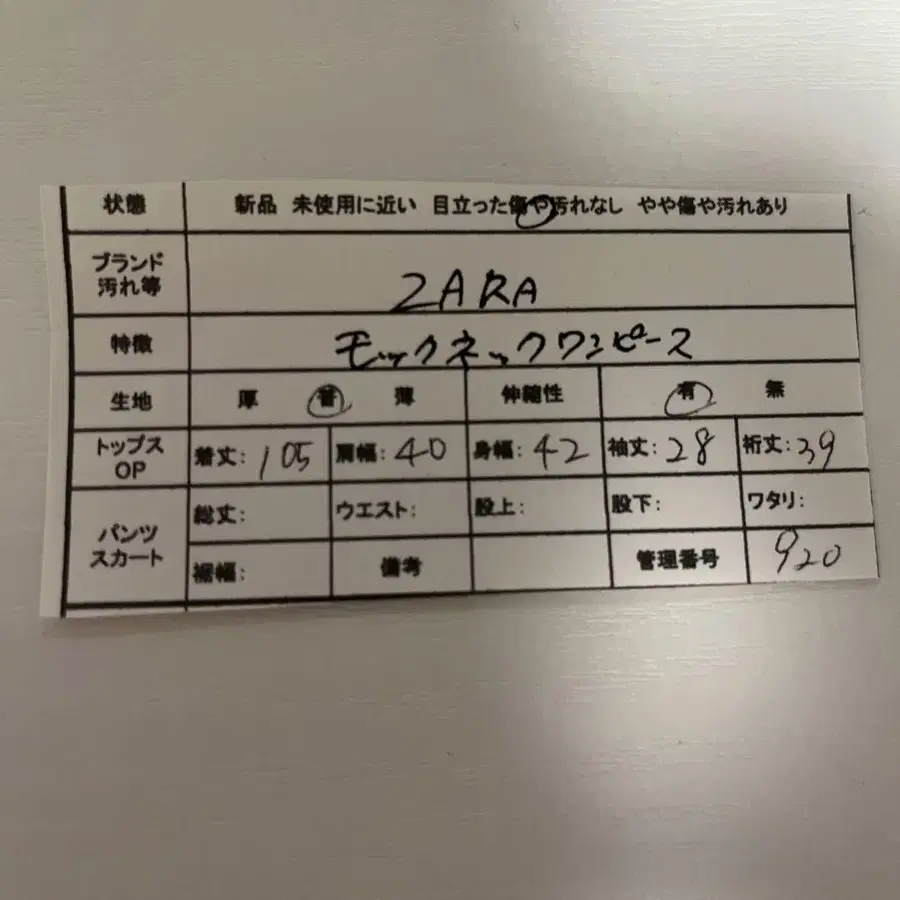 状態 新品 未使用に近い 目立った傷や汚れなし やや傷や汚れあり
ブランド
汚れ等
ZARA
特徴 モックネックワンピース
生地 厚 普 薄 伸縮性 有 無
トップス
OP
着丈:105 肩幅:40 身幅:42 袖丈:28 裄丈:39
パンツ
スカート
総丈: ウエスト: 股上: 股下: ワタリ:
裾幅: 備考 管理番号 920